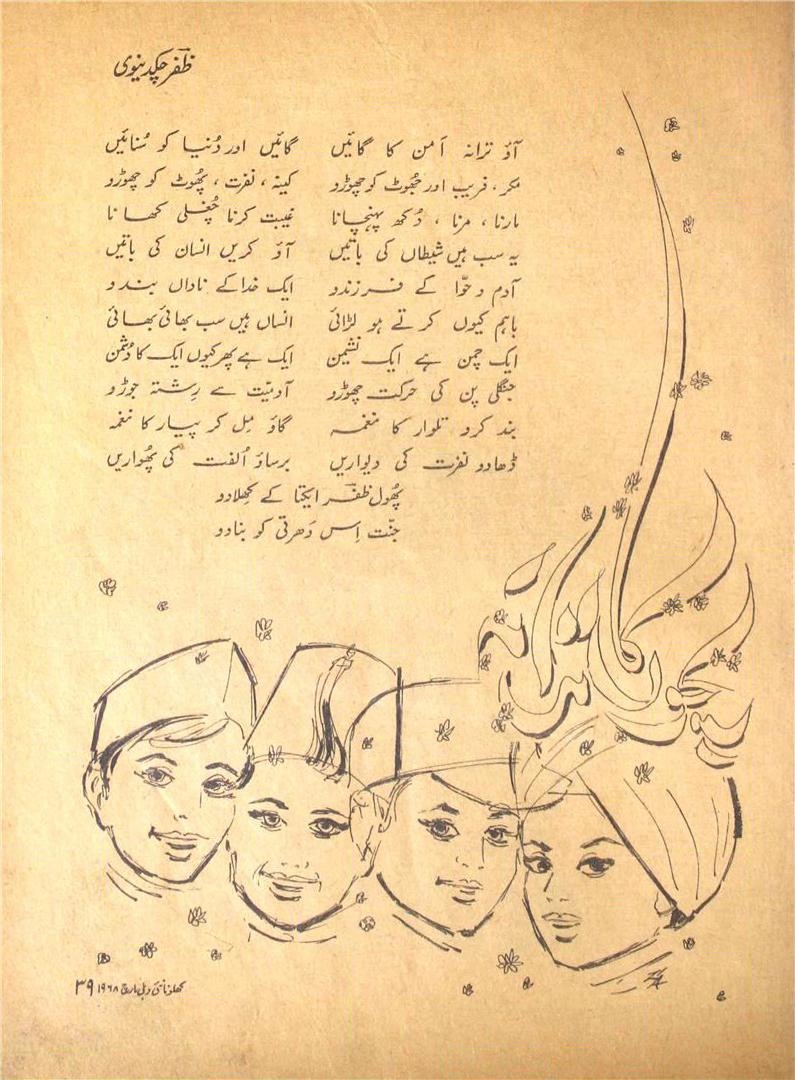 ظفر چکدینوی
آؤ ترانہ اَمن کا گائیں گائیں اور دُنیا کو سُنائیں
مکر، فریب اور جھُوٹ کو چھوڑو کینہ، نفرت، پھُوٹ کو چھوڑو
مارنا، مرنا، دُکھ پہنچانا غیبت کرنا چُغلی کھانا
یہ سب ہیں شیطاں کی باتیں آؤ کریں انسان کی باتیں
آدم و حوّا کے فرزندو ایک خدا کے ناداں بندو
باہم کیوں کرتے ہو لڑائی انساں ہیں سب بھائی بھائی
ایک چمن ہے ایک نشیمن ایک ہے پھر کیوں ایک کا دُشمن
جنگلی پن کی حرکت چھوڑو آدمیّت سے رِشتہ جوڑو
بند کرو تلوار کا نغمہ گاؤ مِل کر پیار کا نغمہ
ڈھا دو نفرت کی دیواریں برساؤ اُلفت کی پھُواریں
پھُول ظفرؔ ایکتا کے کھِلا دو
جنّت اِس دَھرتی کو بنا دو
بچوں کا ترانہ
کھلونا نئی دہلی مارچ ۱۹۶۸ ۳۹